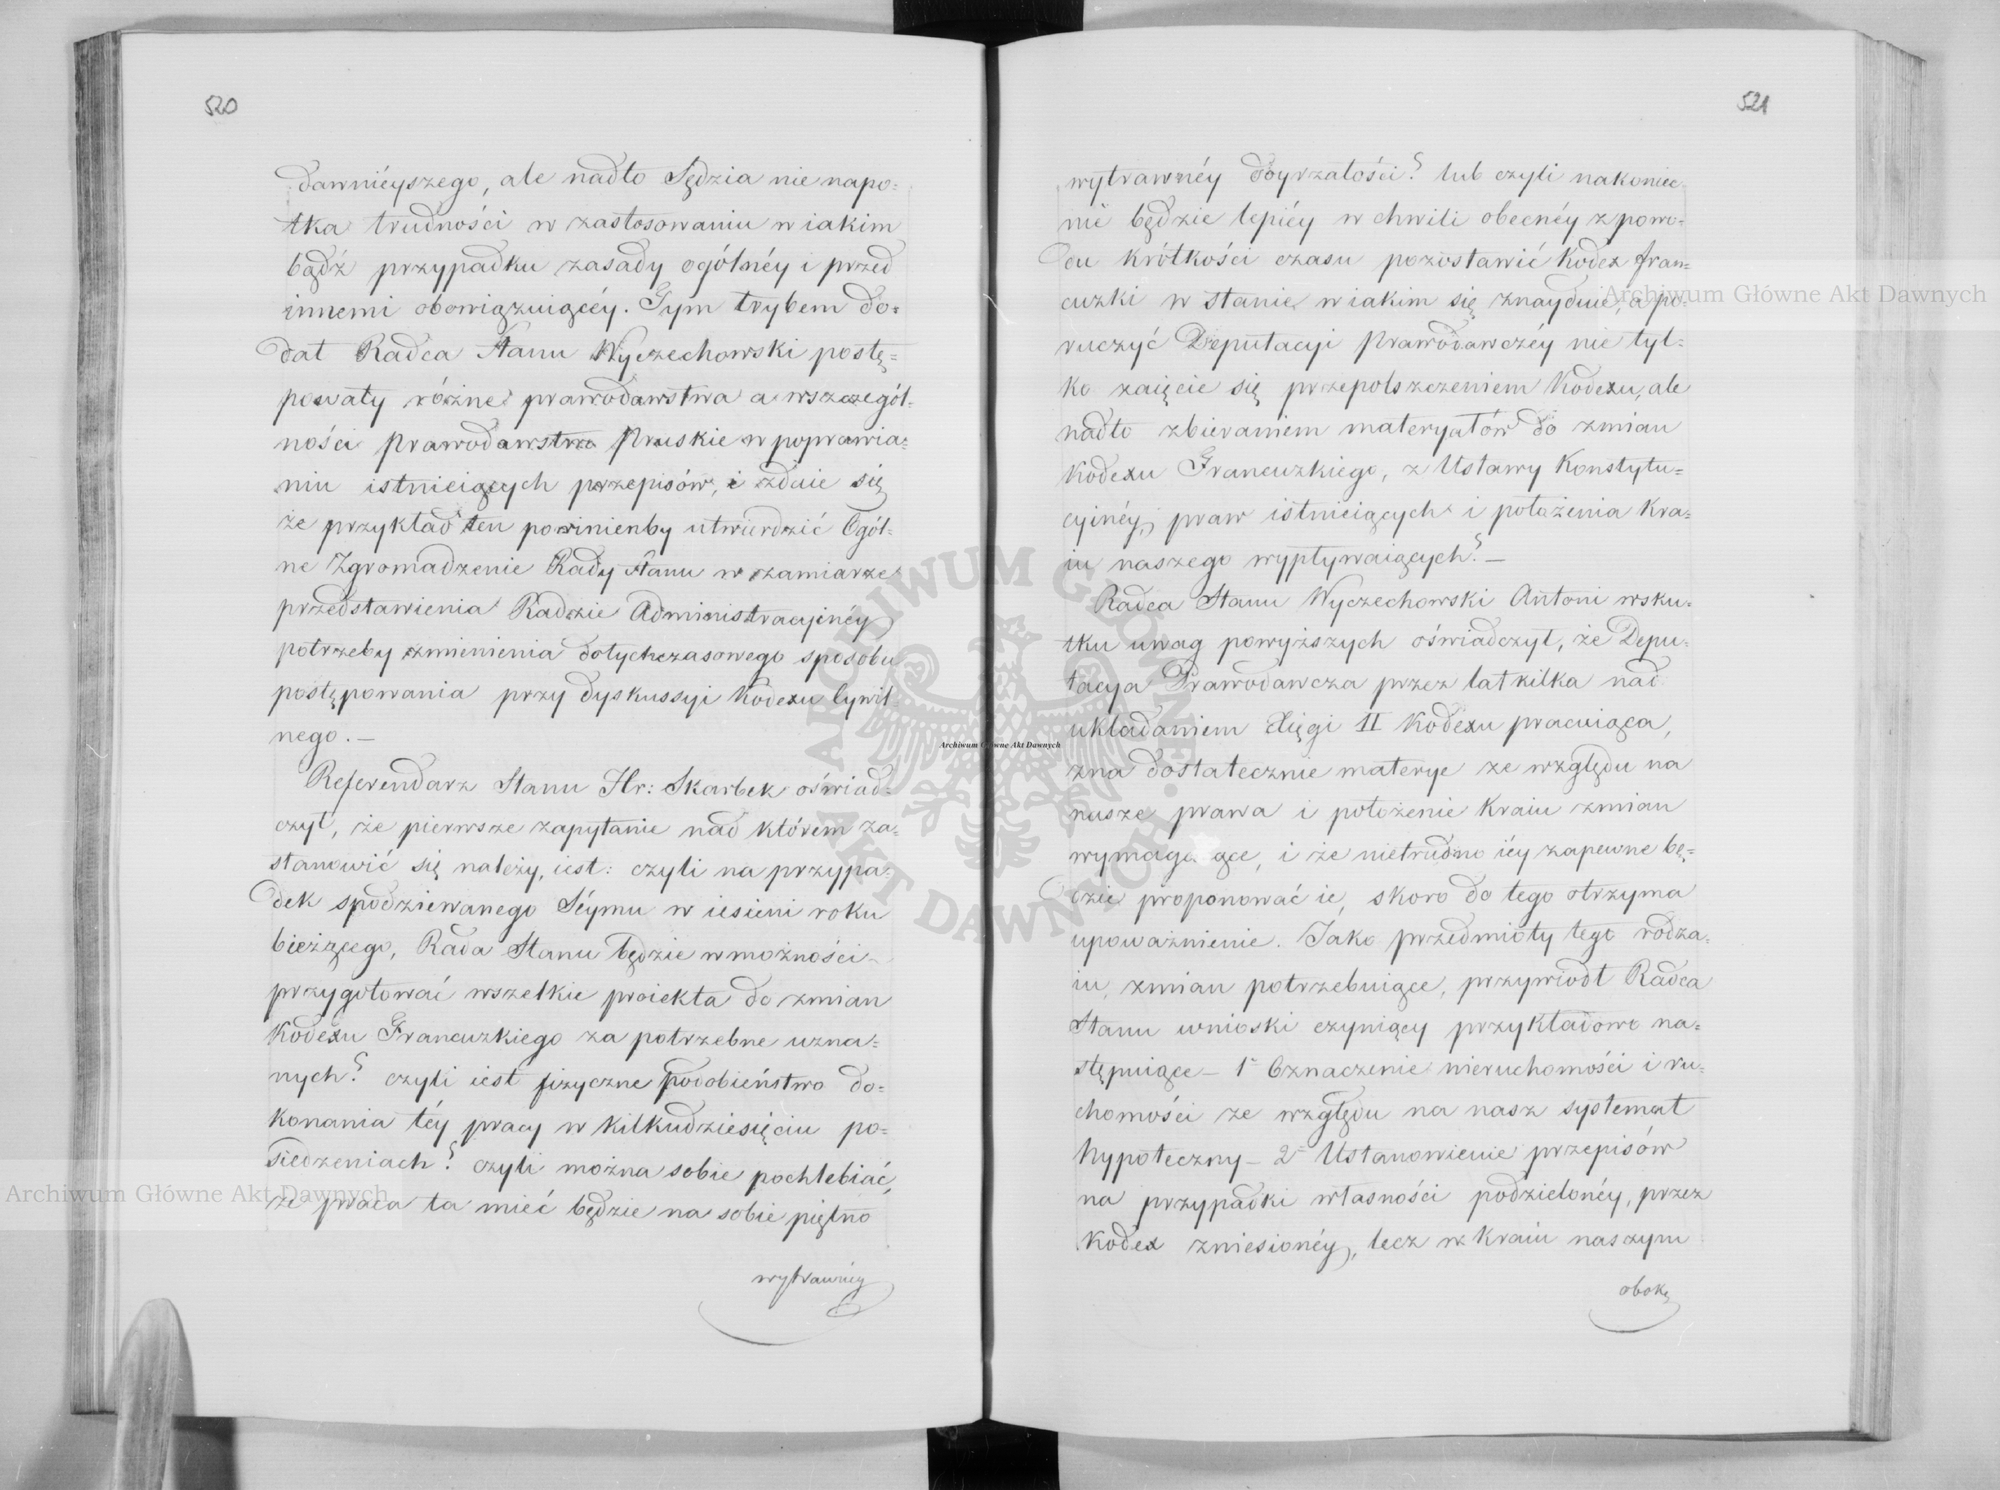 520
dawniéyszego, ale nadto Sędzia nie napo=
tka trudności w zastosowaniu w iakim
bądź przypadku zasady ogólnéy i przed
innemi obowiązuiącéy. Tym trybem do=
dał Radca Stanu Wyczechowski postę=
powały różne prawodawstwa a wszczegól=
ności Prawodawstwo Pruskie w poprawia=
niu istnieiących przepisów, i zdaie się
że przykład ten powinienby utwierdzić Ogól=
ne Zgromadzenie Rady Stanu w zamiarze
przedstawienia Radzie Administracyinéy
potrzeby zmienienia dotychczasowego sposobu
postępowania przy dyskussyi Kodexu Cywil=
nego. —
Referendarz Stanu Hr: Skarbek oświad=
czył, że pierwsze zapytanie nad którem za=
stanowić się należy, iest: czyli na przypa=
dek spodziewanego Séymu w iesieni roku
bieżącego, Rada Stanu będzie w możności
przygotować wszelkie proiekta do zmian
Kodexu Francuzkiego za potrzebne uzna=
nych? czyli iest fizyczne podobieństwo do=
konania téy pracy w kilkudziesięciu po=
siedzeniach? czyli można sobie pochlebiać,
że praca ta mieć będzie na sobie piętno
wytrawnéy
521
wytrawnéy doyrzałości? lub czyli nakoniec
nie będzie lepiéy w chwili obecnéy z powo=
du krótkości czasu pozostawić Kodex fran=
cuzki w stanie w iakim się znayduie, a po=
ruczyć Deputacyi Prawodawczéy nie tyl=
ko zaięcie się przepolszczeniem Kodexu, ale
nadto zbieraniem materyałów do zmian
Kodexu Francuzkiego, z Ustawy Konstytu=
cyinéy, praw istnieiących i położenia Kra=
iu naszego wypływaiących? —
Radca Stanu Wyczechowski Antoni wsku=
tku uwag powyższych oświadczył, że Depu=
tacya Prawodawcza przez lat kilka nad
układaniem Xięgi II Kodexu pracuiąca,
zna dostatecznie materye ze względu na
nasze prawa i położenie Kraiu zmian
wymagaiące, i że nietrudno iéy zapewne bę=
dzie proponować ie, skoro do tego otrzyma
upoważnienie. Jako przedmioty tego rodza=
iu, zmian potrzebuiące, przywiódł Radca
Stanu wnioski czyniący przykładowo na=
stępuiące — 1° Oznaczenie nieruchomości i ru=
chomości ze względu na nasz systemat
hypoteczny — 2° Ustanowienie przepisów
na przypadki własności podzielonéy, przez
Kodex zniesionéy, lecz w Kraiu naszym
oboką
Archiwum Główne Akt Dawnych
Archiwum Główne Akt Dawnych
Archiwum Główne Akt Dawnych
ARCHIWUM GŁÓWNE AKT DAWNYCH